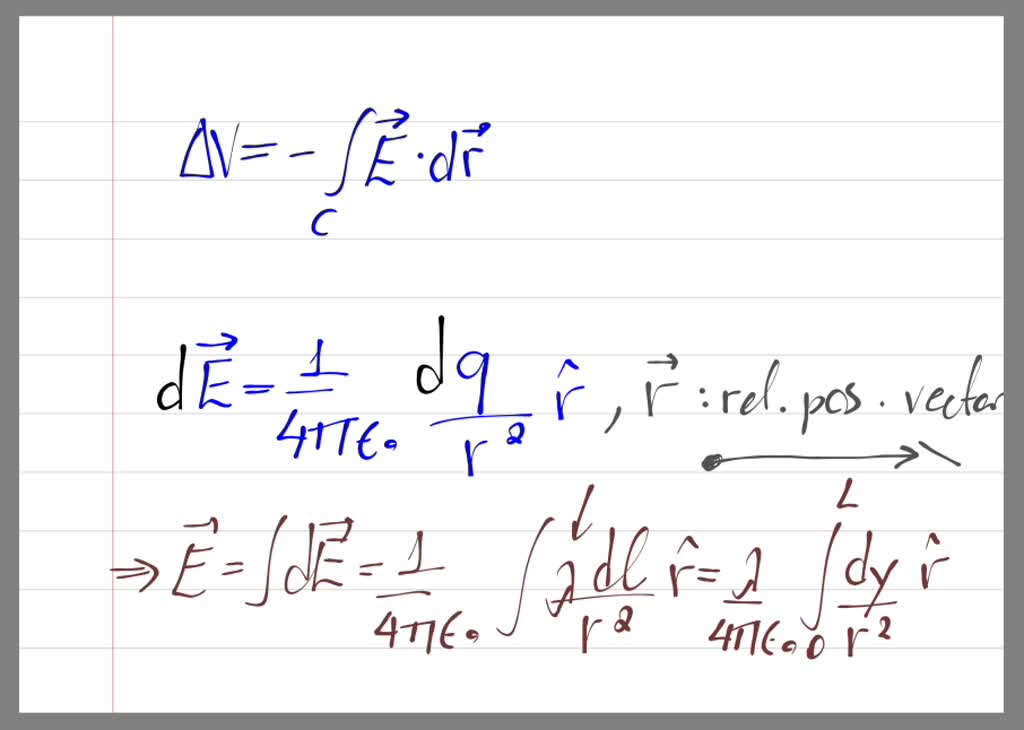 ΔV = - ∫_C E⃗ · dr⃗
dE⃗ = 1/4πϵ₀ dq/r² r̂ , r⃗ : rel. pos. vector
⇒ E⃗ = ∫dE⃗ = 1/4πϵ₀ ∫ λdl/r² r̂ = λ/4πϵ₀ ∫₀^L dy/r² r̂